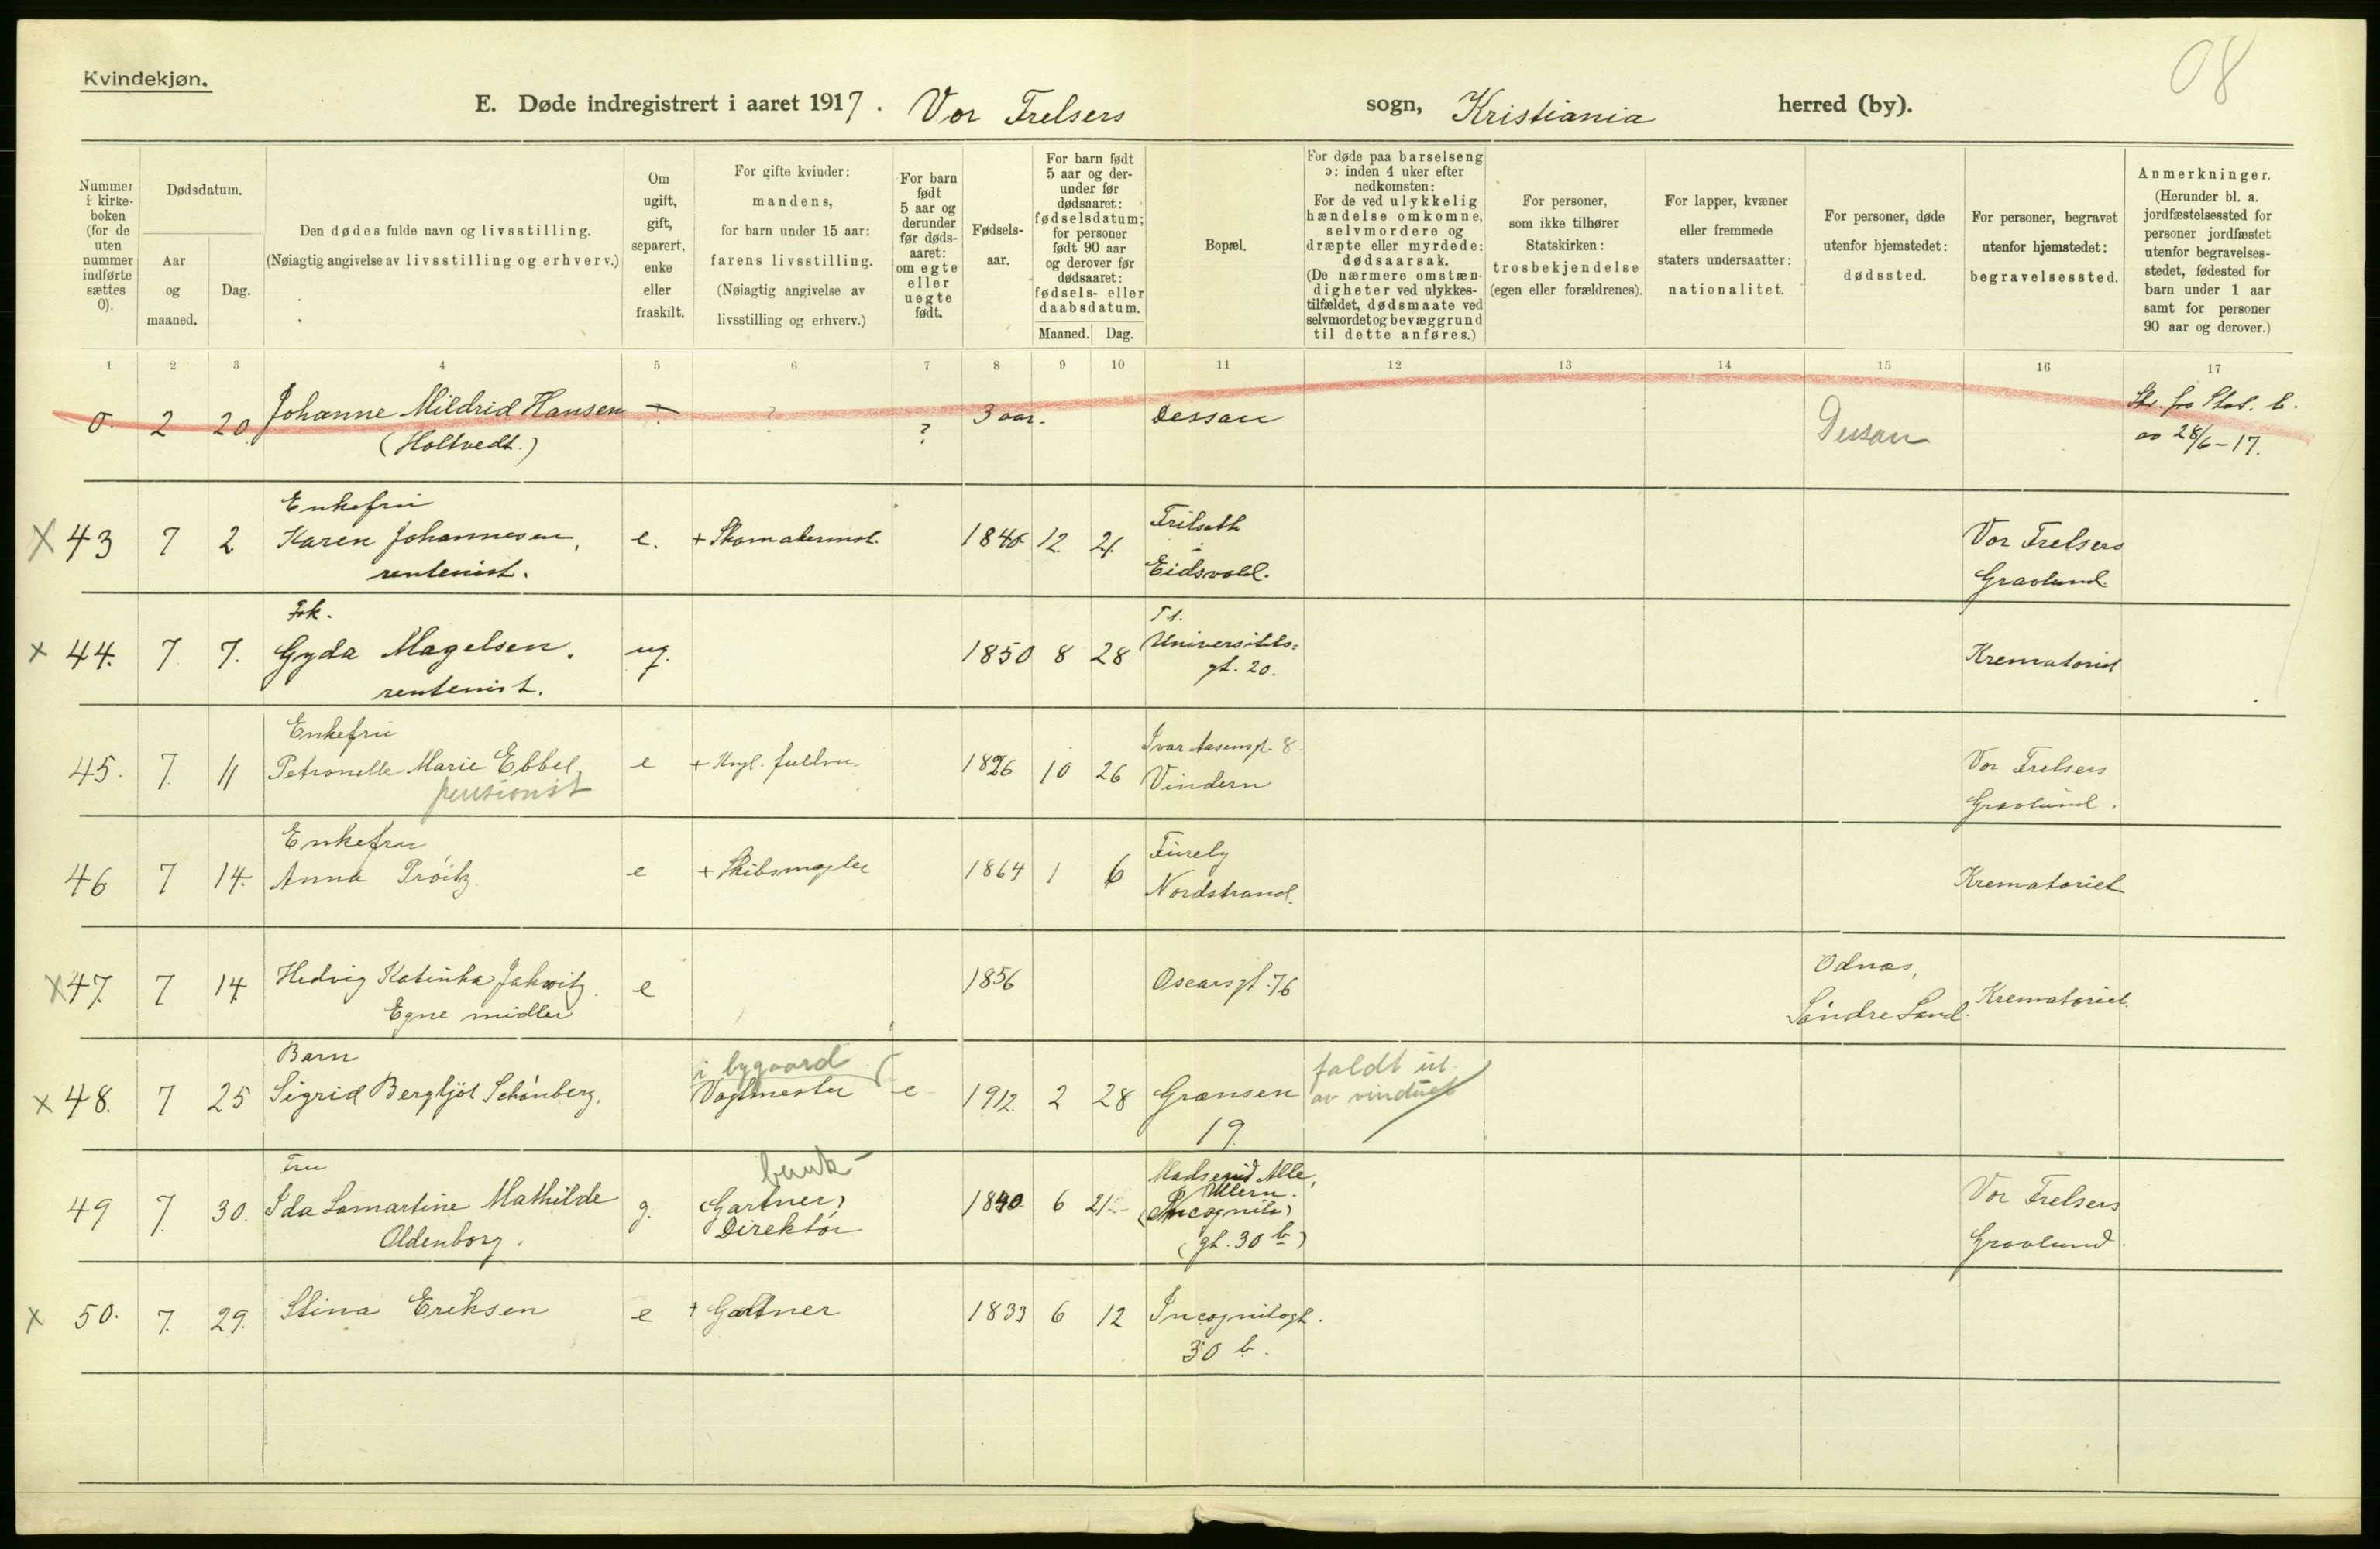 Kvindekjøn.
08
E. Døde indregistrert i aaret 1917. Vor Frelsers sogn, Kristiania herred (by).
Nummer i kirke-boken (for de uten nummer indførte sættes 0).
Dødsdatum.
Aar og maaned.
Dag.
Den dødes fulde navn og livsstilling.
(Nøiagtig angivelse av livsstilling og erhverv.)
Om ugift, gift, separert, enke eller fraskilt.
For gifte kvinder: mandens, for barn under 15 aar: farens livsstilling.
(Nøiagtig angivelse av livsstilling og erhverv.)
For barn født 5 aar og derunder før døds-aaret: om egte eller uegte født.
Fødsels-aar.
For barn født 5 aar og der-under før dødsaaret: fødselsdatum; for personer født 90 aar og derover før dødsaaret: fødsels- eller daabsdatum.
Maaned. Dag.
Bopæl.
For døde paa barselseng ɔ: inden 4 uker efter nedkomsten:
For de ved ulykkelig hændelse omkomne, selvmordere og dræpte eller myrdede: dødsaarsak.
(De nærmere omstæn-digheter ved ulykkes-tilfældet, dødsmaate ved selvmordet og bevæggrund til dette anføres.)
For personer, som ikke tilhører Statskirken: trosbekjendelse (egen eller forældrenes).
For lapper, kvæner eller fremmede staters undersaatter: nationalitet.
For personer, døde utenfor hjemstedet: dødssted.
For personer, begravet utenfor hjemstedet: begravelsessted.
Anmerkninger.
(Herunder bl. a. jordfæstelsessted for personer jordfæstet utenfor begravelses-stedet, fødested for barn under 1 aar samt for personer 90 aar og derover.)
1 2 3 4 5 6 7 8 9 10 11 12 13 14 15 16 17
0. 2 20 Johanne Mildrid Hansen ? ? 3 aar. Dessau Dessau
(Holtvedt.)
Skr. fra Stat. b.
av 28/6-17.
Enkefru
X 43 7 2 Karen Johannesen, e. + Skomakermst. 1840 12. 21.
rentenist.
i
Eidsvold.
Vor Frelsers
Gravlund.
Frk.
x 44. 7 7. Gyda Magelsen. ug. 1850 8 28
rentenist.
Universitets=
gt. 20.
Krematoriet
Enkefru
45. 7. 11 Petronelle Marie Ebbel, e + Kngl. fuldm. 1826 10 26
pensionist
Ivar Aasensgt. 8
Vindern
Vor Frelsers
Gravlund.
Enkefru
46 7 14. Anna Prøitz. e + Skibsmegler 1864 1 6
Furely
Nordstrand.
Krematoriet
X 47. 7 14. Hedvig Katinka Jakwitz. e 1856 Oscarsgt. 76
Egne midler
Odnæs,
Søndre Land.
Krematoriet.
Barn
x 48. 7 25 Sigrid Bergljot Schønberg. e 1912. 2 28 Grænsen
19.
i bygaard
Vagtmester
faldt ut
av vinduet
Fru
49 7. 30. Ida Lamartine Mathilde g. 1840 6 21
Oldenborg.
bank-
(Gartner)
Direktør
Madserud Alle,
Ullern.
(Incognito)
(gt. 30 b)
Vor Frelsers
Gravlund.
x 50. 7. 29. Stina Eriksen e + Gartner 1833 6 12 Incognitogt.
30 b.